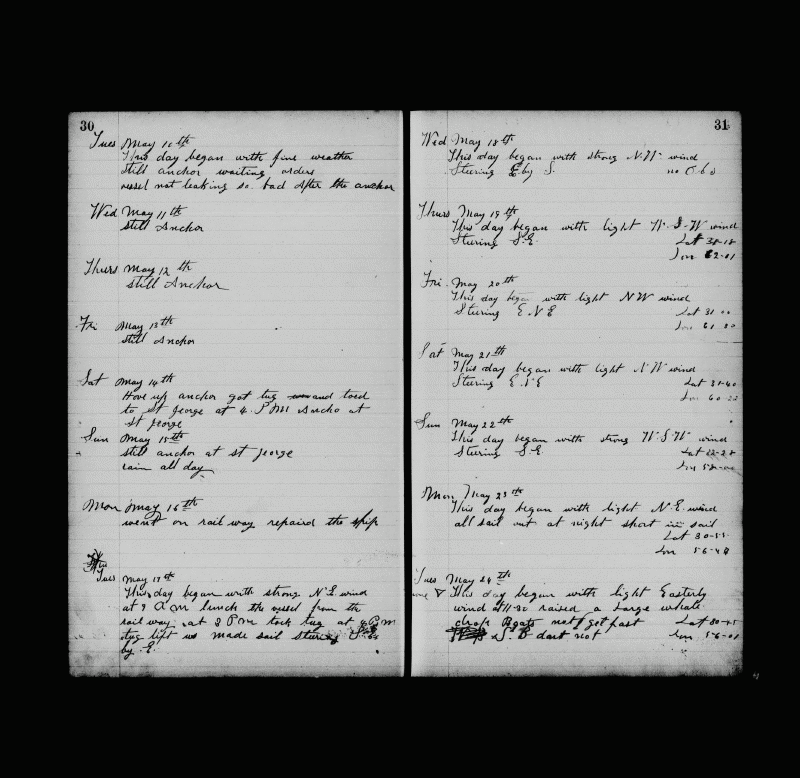 30
Tues May 10th
This day began with fine weather
still anchor waiting orders
vessel not leaking so bad after the anchor
Wed May 11th
still Anchor
Thurs May 12th
still Anchor
Fri May 13th
still Anchor
Sat May 14th
Hove up anchor got tug and toed
to St George at 4 P M Ancho at
St George
Sun May 15th
still anchor at st george
rain all day
Mon May 16th
went on rail way repaired the ship
Tues May 17th
This day began with strong N.E. wind
at 9 a m lunch the vessel from the
rail way at 3 P m took tug at 4 P m
tug left us made sail steering
by E.
31
Wed May 18th
This day began with strong N.W. wind
Steering E by S. no Obs
Thurs May 19th
This day began with light W. S-W wind
Steering S.E. Lat 38-18
Lon 62-01
Fri May 20th
This day began with light N W wind
Steering E.N.E Lat 31 00
Lon 61 30
Sat May 21st
This day began with light N.W. wind
Steering E.N.E Lat 31-40
Lon 60-22
Sun May 22th
This day began with strong W-S-W wind
Steering S.E. Lat 32-28
Lon 58-00
Mon May 23th
This day began with light N.E. wind
all sail out at night short in sail
Lat 30-55
Lon 56-44
Tues May 24th
This day began with light Easterly
wind at 11-30 raised a large whale
drop Boats not get fast Lat 30-45
S. B dart not Lon 56-01